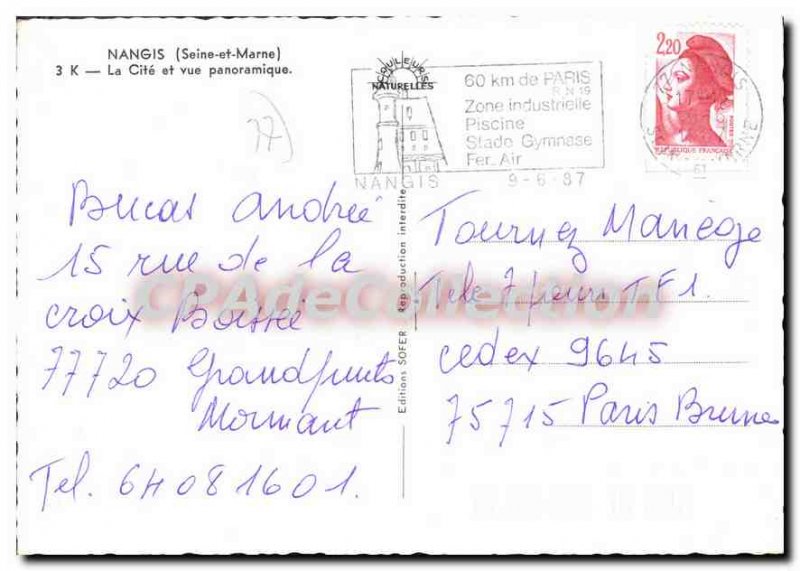 NANGIS (Seine-et-Marne)
3 K — La Cité et vue panoramique.
77
COULEURS
NATURELLES
60 km de PARIS
R N 19
Zone industrielle
Piscine
Stade Gymnase
Fer. Air
NANGIS 9-6-87
2,20
REPUBLIQUE FRANÇAISE
Bucas Andrée
15 rue de la
croix Boissée
77720 Grandpuits
Mormant
Tel. 64081601.
Editions SOFER Reproduction interdite
Tournez Manège
Tele 7 jours T.F.1.
cedex 9645
75715 Paris Brune
CPAdeCollection